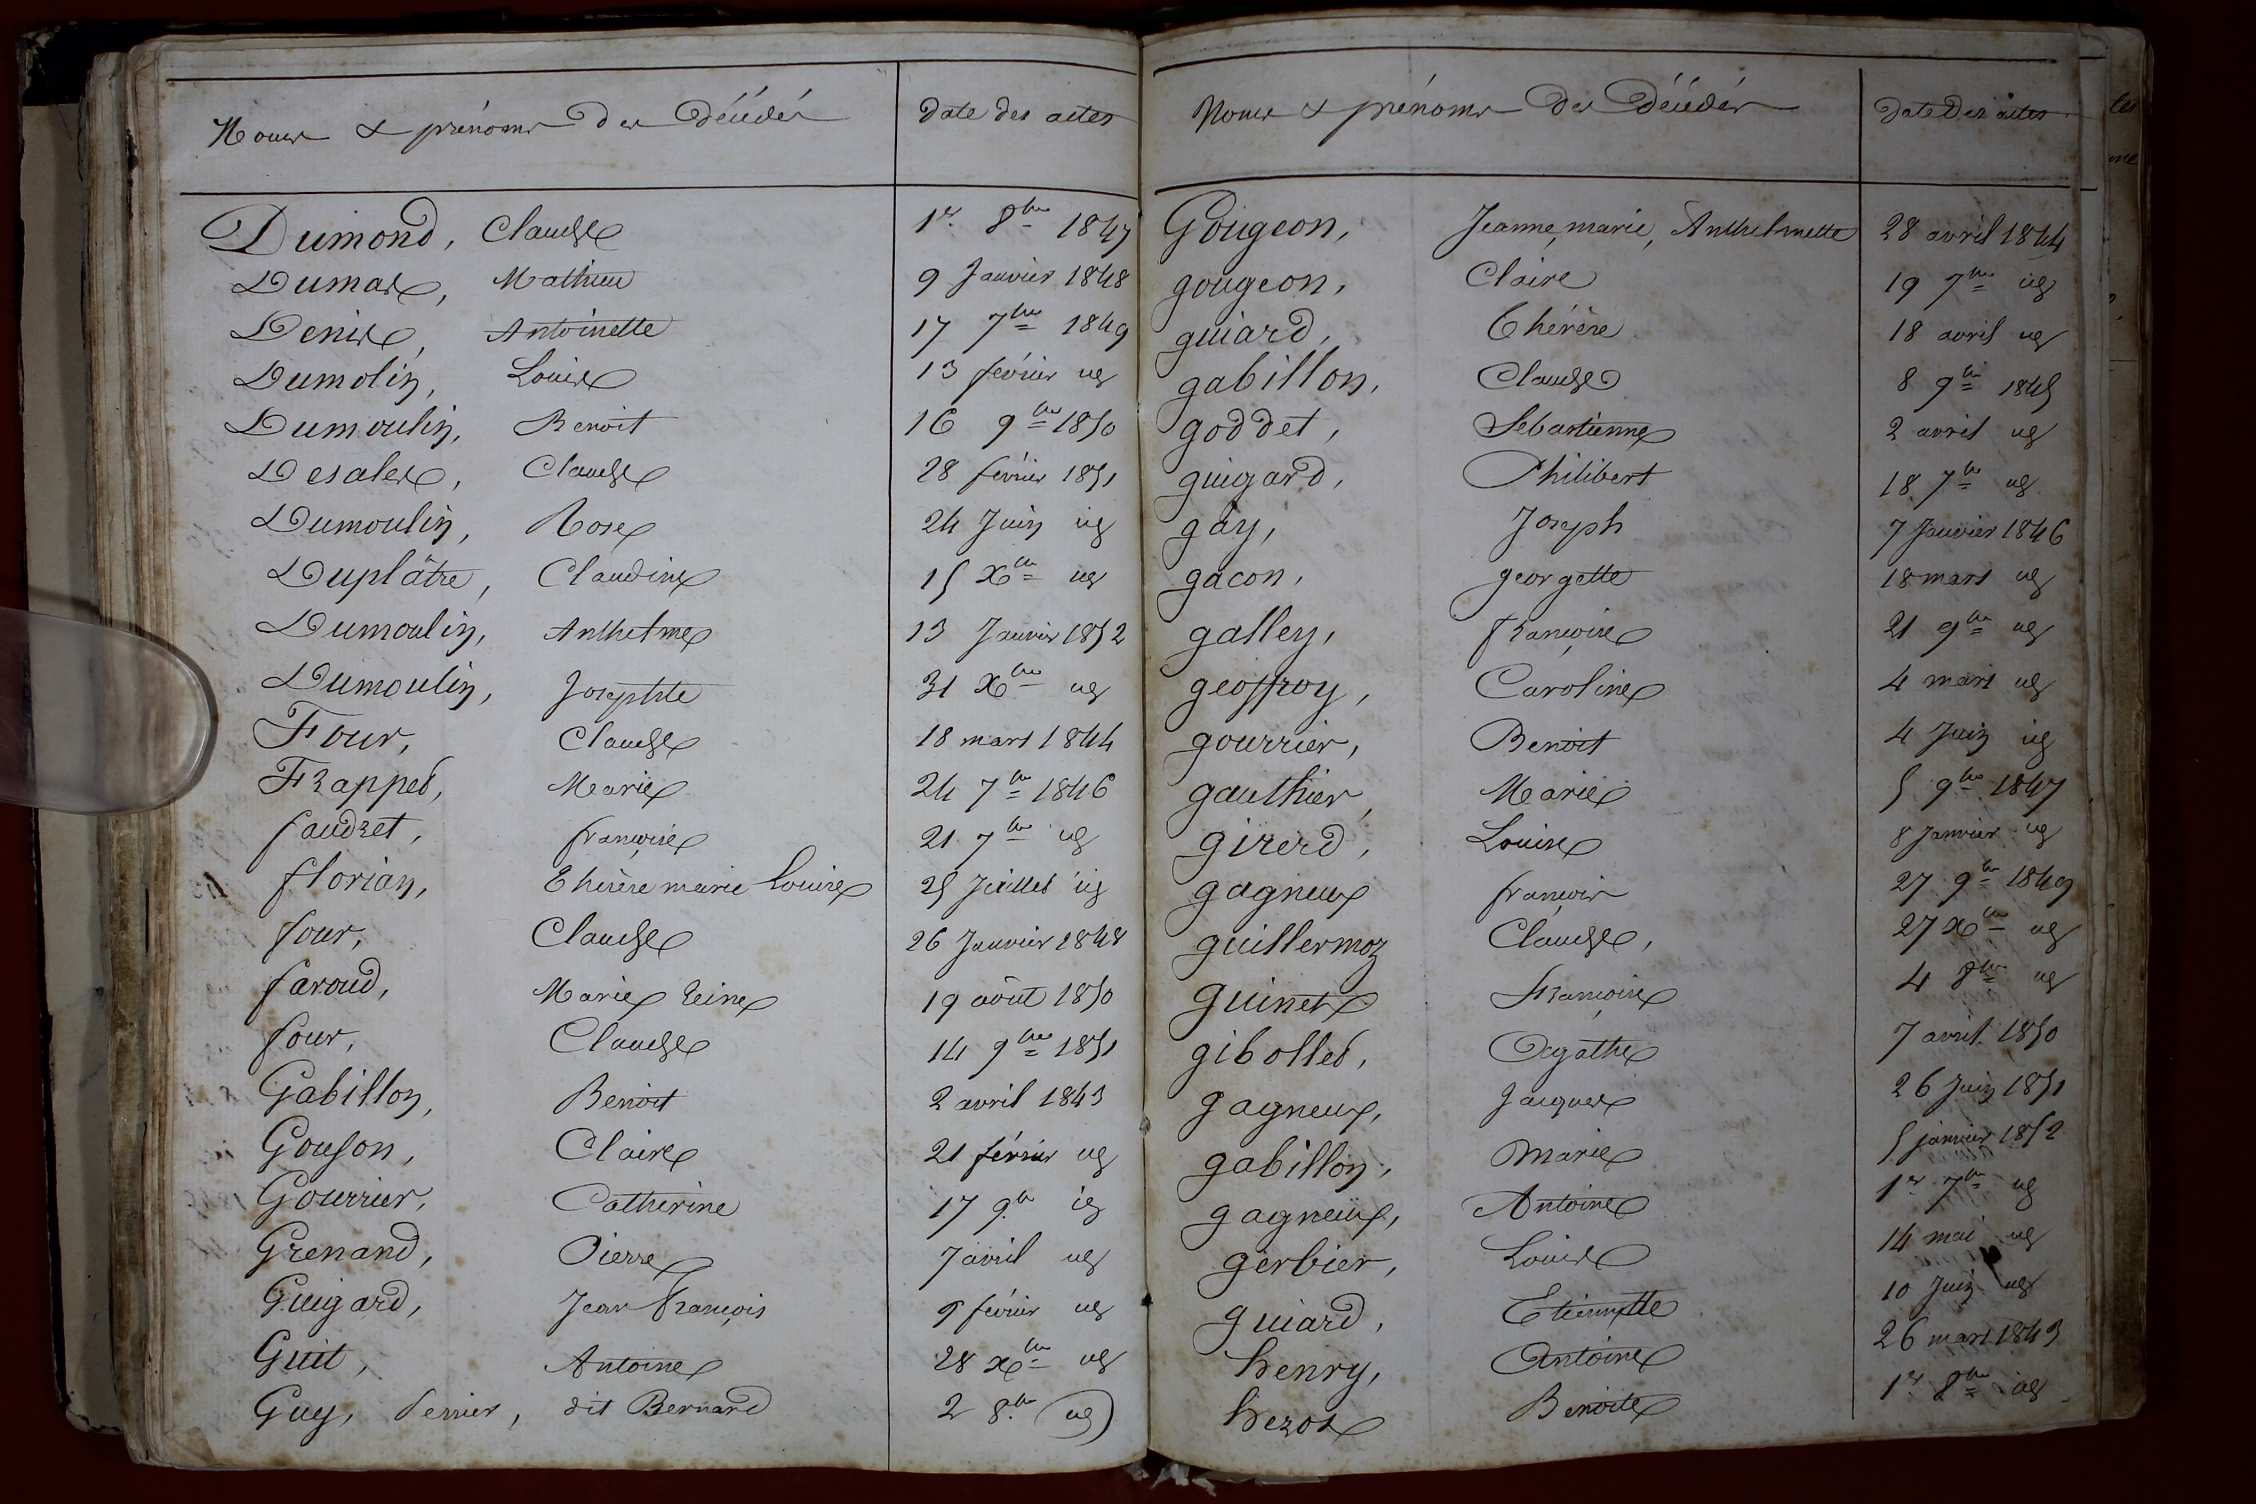 Noms & prénoms des décédés Date des actes
Dumond, Claude 1er 8bre 1847
Dumas, Mathieu 9 Janvier 1848
Denis, Antoinette 17 7bre 1849
Dumolin, Louise 13 février id
Dumoulin, Benoit 16 9bre 1850
Desales, Claude 28 février 1851
Dumoulin, Rose 24 Juin id
Duplâtre, Claudine 15 Xbre id
Dumoulin, Anthelme 13 Janvier 1852
Dumoulin, Josephte 31 Xbre id
Four, Claude 18 mars 1844
Frappet, Marie 24 7bre 1846
faudret, françoise 21 7bre id
florian, Thérèse marie Louise 25 Juillet id
four, Claude 26 Janvier 1848
faroud, Marie reine 19 août 1850
four, Claude 14 9bre 1851
Gabillon, Benoit 2 avril 1843
Goujon, Claire 21 février id
Gourrier, Catherine 17 9bre id
Grenand, Pierre 7 avril id
Guigard, Jean François 9 février id
Guit, Antoine 28 Xbre id
Guy, dit Bernard 2 8bre id
Noms & prénoms des décédés Date des actes
Gougeon, Jeanne, marie, Anthelmette 28 avril 1844
gougeon, Claire 19 7bre id
guiard, Thérèse 18 avril id
gabillon, Claude 8 9bre 1845
goddet, Sébastienne 2 avril id
guigard, Philibert 18 7bre id
gay, Joseph 7 Janvier 1846
gacon, georgette 18 mars id
galley, françoise 21 9bre id
geoffroy, Caroline 4 mars id
gourrier, Benoit 4 Juin id
gauthier, Marie 5 9bre 1847
girerd, Louise 8 Janvier id
gagneux françois 27 9bre 1849
guillermoz Claude, 27 Xbre id
guinet Françoise 4 8bre id
gibollet, Agathe 7 avril 1850
gagneux, Jacques 26 Juin 1851
gabillon, Marie 5 janvier 1852
gagneux, Antoine 1er 7bre id
gerbier, Louis 14 mai id
guiard, Etiennette 10 Juin id
henry, Antoine 26 mars 1843
hezos Benoite 1er 8bre id